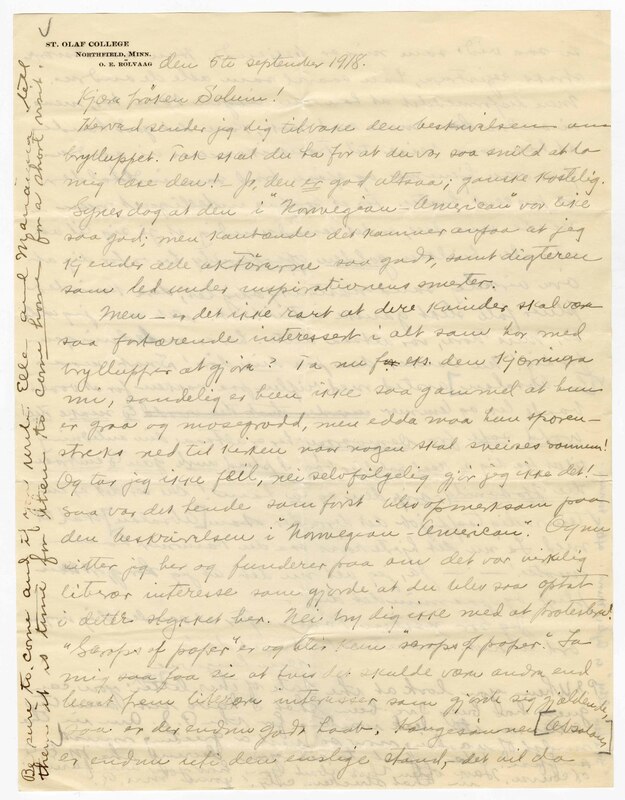 ST. OLAF COLLEGE
NORTHFIELD, MINN.
O. E. RÖLVAAG
den 5te september 1918.
Kjære frøken Solum!
Herved sender jeg dig tilbake den beskrivelsen om
brylluppet. Tak skal du ha for at du var saa snild at la
mig læse den! – Jo, den er god altsaa; ganske kostelig.
Synes dog at den i "Norwegian-American" var like
saa god; men kanhænde det kommer an paa at jeg
kjender alle aktørerne saa godt, samt digteren
som led under inspirationens smerter.
Men – er det ikke rart at dere kvinder skal være
saa fortærende interessert i alt som har med
brylluper at gjøre? Ta nu for eks. den kjæringa
mi, sandelig er hun ikke saa gammel at hun
er graa og mosegrodd, men enda maa hun sporen-
streks ned til kirken naar nogen skal sveises sammen!
Og tar jeg ikke feil, nei selvfølgelig gjør jeg ikke det! –
saa var det hende som først blev opmerksom paa
den beskrivelsen i "Norwegian-American". Og nu
sitter jeg her og funderer paa om det var virkelig
literær interesse som gjorde at du blev saa optat
i dette stykket her. Nei bry dig ikke med at protestere!
"Scraps of paper" er og blir kun "scraps of paper". La
mig saa faa si at hvis det skulde være andre end
bent frem literære interesser som gjorde sig gjældende,
saa er der endnu godt haab. Kongssønnen [Absalom]
er endnu uti den enslige stand, det vil da
Be sure to come and if you see Elle and Magnanina tell
them it is time for them to come home for a short visit.